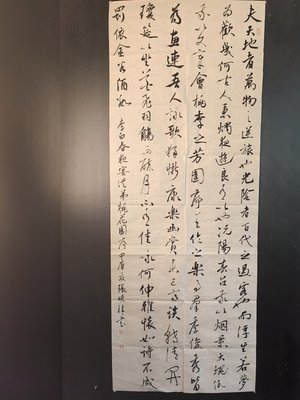 夫天地者萬物之逆旅也光陰者百代之過客也而浮生若夢
為歡幾何古人秉燭夜遊良有以也況陽春召我以烟景大塊假
我以文章會桃李之芳園序天倫之樂事群季俊秀皆
為惠連吾人詠歌獨慚康樂幽賞未已高談轉清開
瓊筵以坐花飛羽觴而醉月不有佳詠何伸雅懷如詩不成
罰依金谷酒數 李白春夜宴從弟桃花園序 甲辰 張